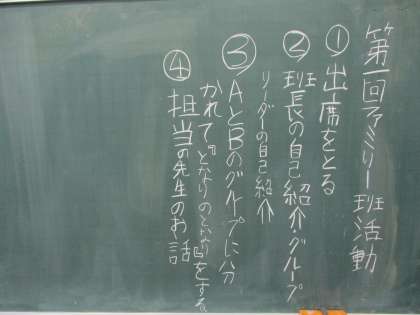 第一回ファミリー班活動
①出席をとる
②班長の自己紹介グループ
リーダーの自己紹介
③AとBのグループに分
かれて"となりのとなり"をする
④担当の先生のお話